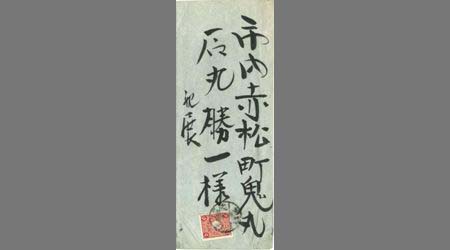 市内赤松町鬼丸
石丸勝一様
親展